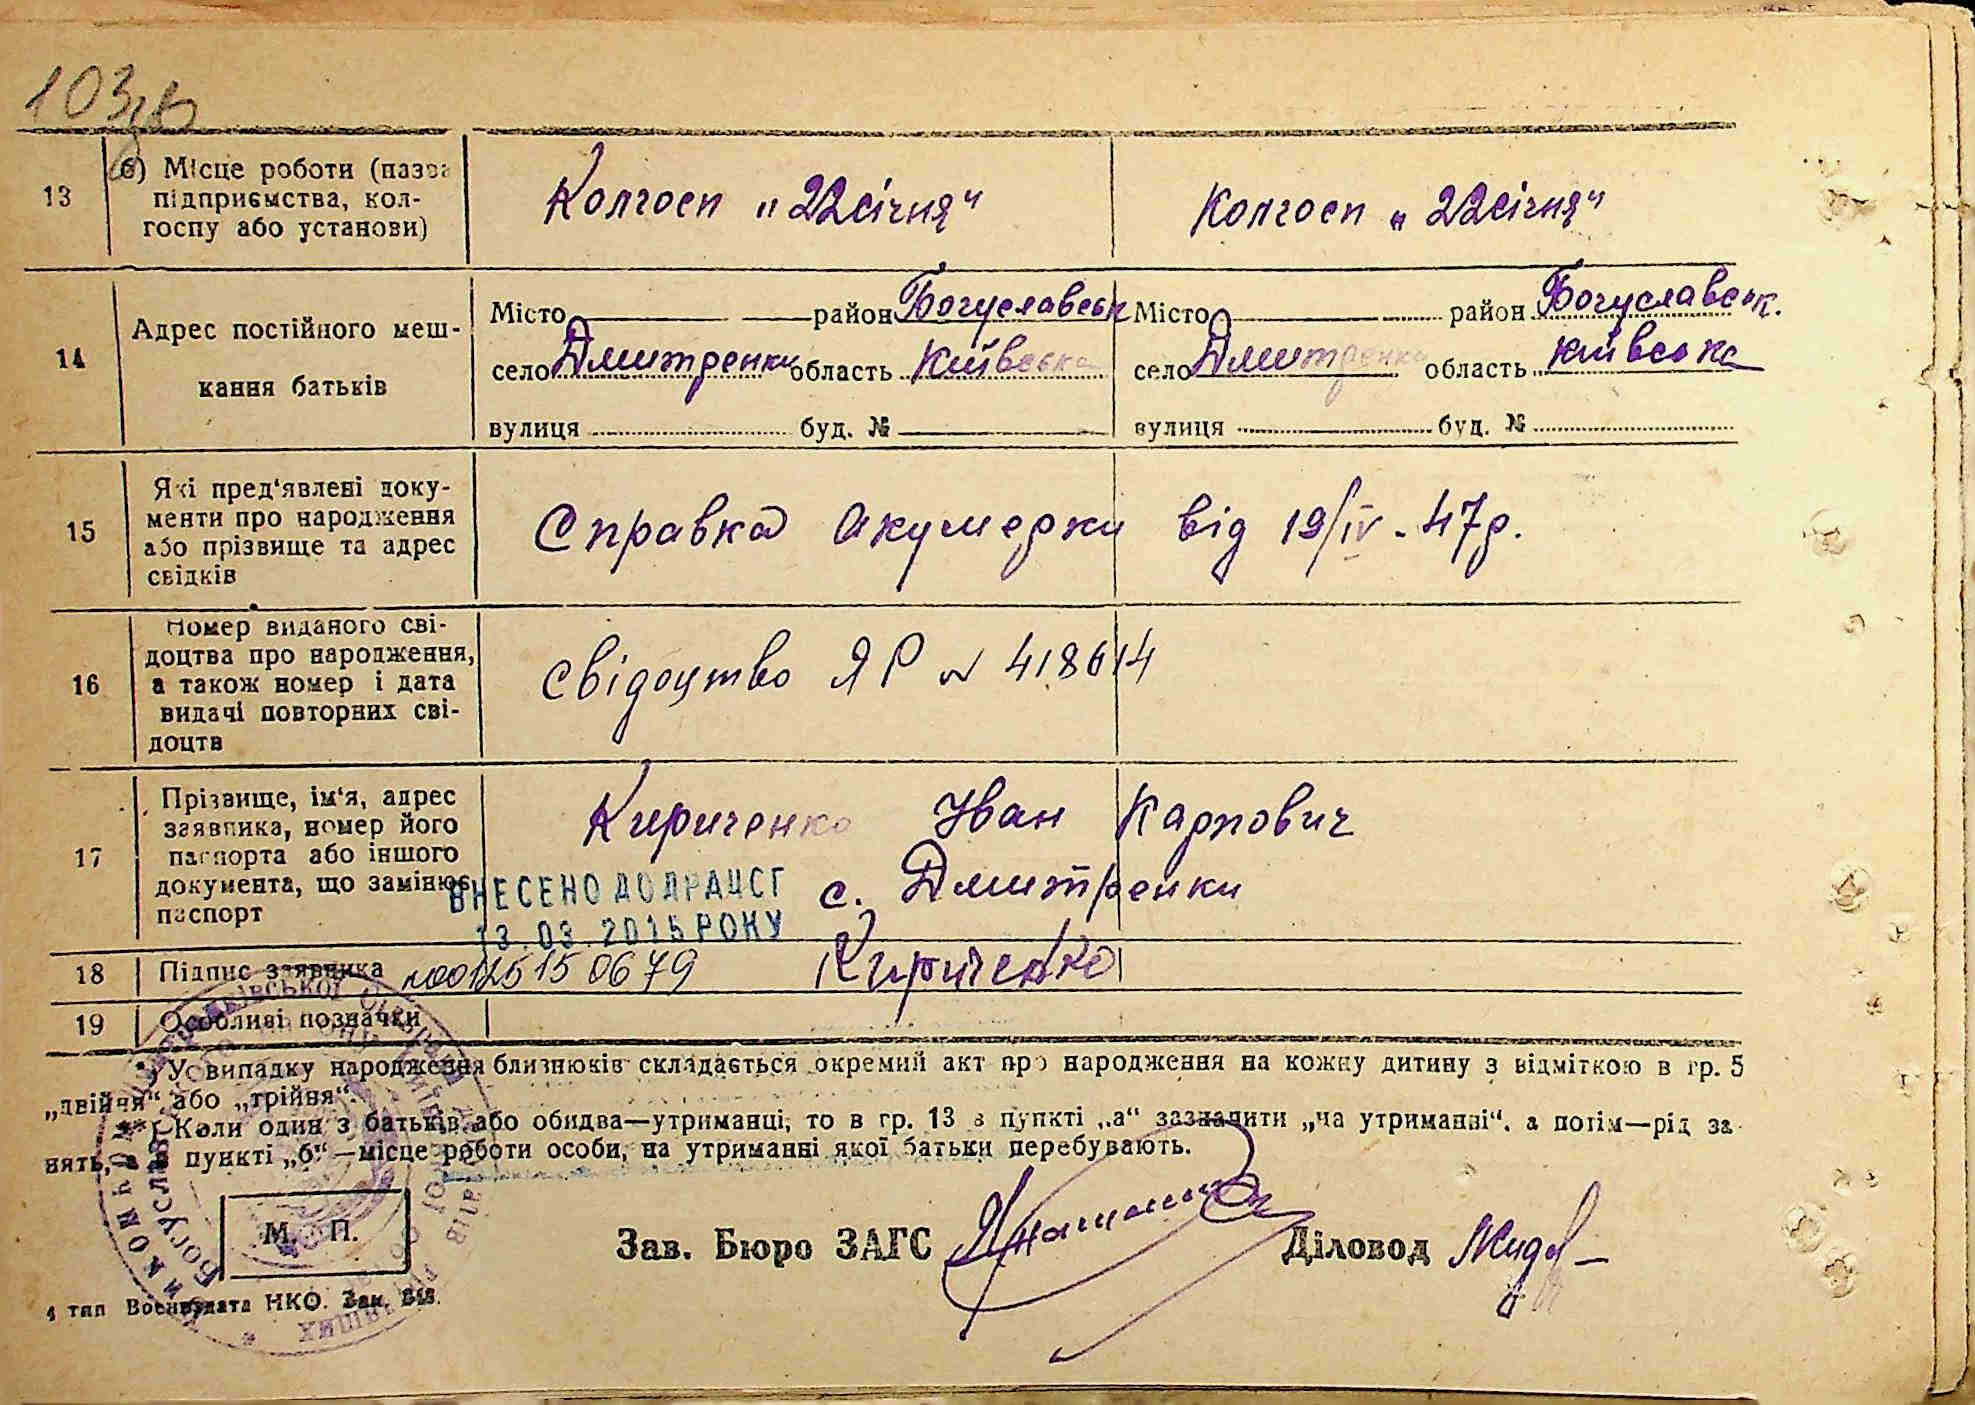 103зв
13
б) Місце роботи (назва
підприємства, кол-
госпу або установи)
Колгосп „22 січня“
Колгосп „22 січня“
14
Адрес постійного меш-
кання батьків
Місто район Богуславськ
село Дмитренки область Київська
вулиця буд. №
Місто район Богуславськ.
село Дмитренки область Київська
вулиця буд. №
15
Які пред‘явлені доку-
менти про народження
або прізвище та адрес
свідків
Справка Акушерки від 19/IV - 47р.
16
Номер виданого сві-
доцтва про народження,
а також номер і дата
видачі повторних сві-
доцтв
Свідоцтво ЯР № 418614
17
Прізвище, ім‘я, адрес
заявника, номер його
паспорта або іншого
документа, що замінює
паспорт
Кириченко Іван Карпович
с. Дмитренки
ВНЕСЕНО ДО ДРАЦСГ
13.03.2015 РОКУ
18
Підпис заявника
№00125150679
Кириченко
19
Особливі позначки
*) У випадку народження близнюків складається окремий акт про народження на кожну дитину з відміткою в гр. 5
„двійня“ або „трійня“.
**) Коли один з батьків або обидва—утриманці, то в гр. 13 в пункті „а“ зазначити „на утриманні“, а потім—рід за-
нять, а в пункті „б“—місце роботи особи, на утриманні якої батьки перебувають.
М. П.
Зав. Бюро ЗАГС
Діловод
4 тип Воениздата НКО. Зак.